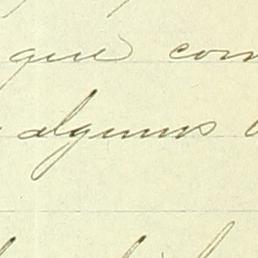 que com
alguns